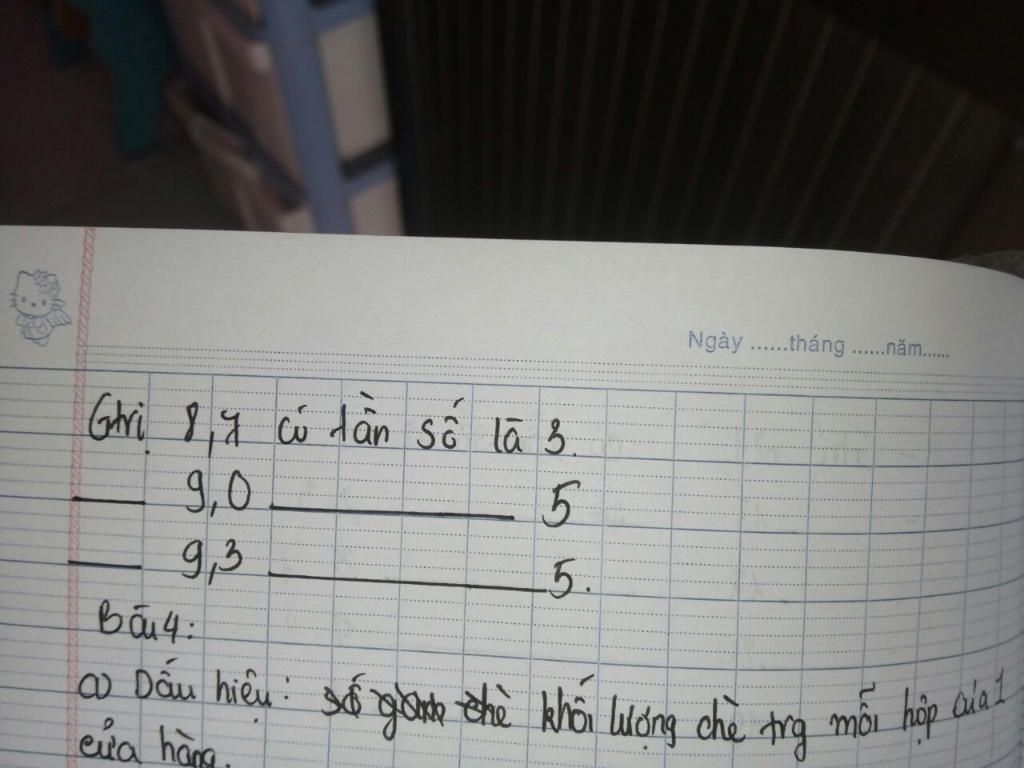 Ngày ......tháng ......năm......
Gtrị 8,7 có tần số là 3.
9,0 5
9,3 5.
Bài 4:
a) Dấu hiệu: khối lượng chè trg mỗi hộp của 1
cửa hàng.